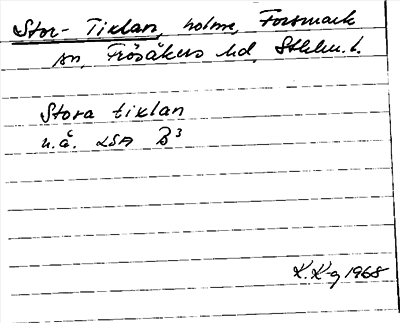 Stor-Tixlan, holme, Forsmark
sn, Frösåkers hd, Sthlm. l.
Stora tixlan
u.å. LSA B³
K. K-g 1968